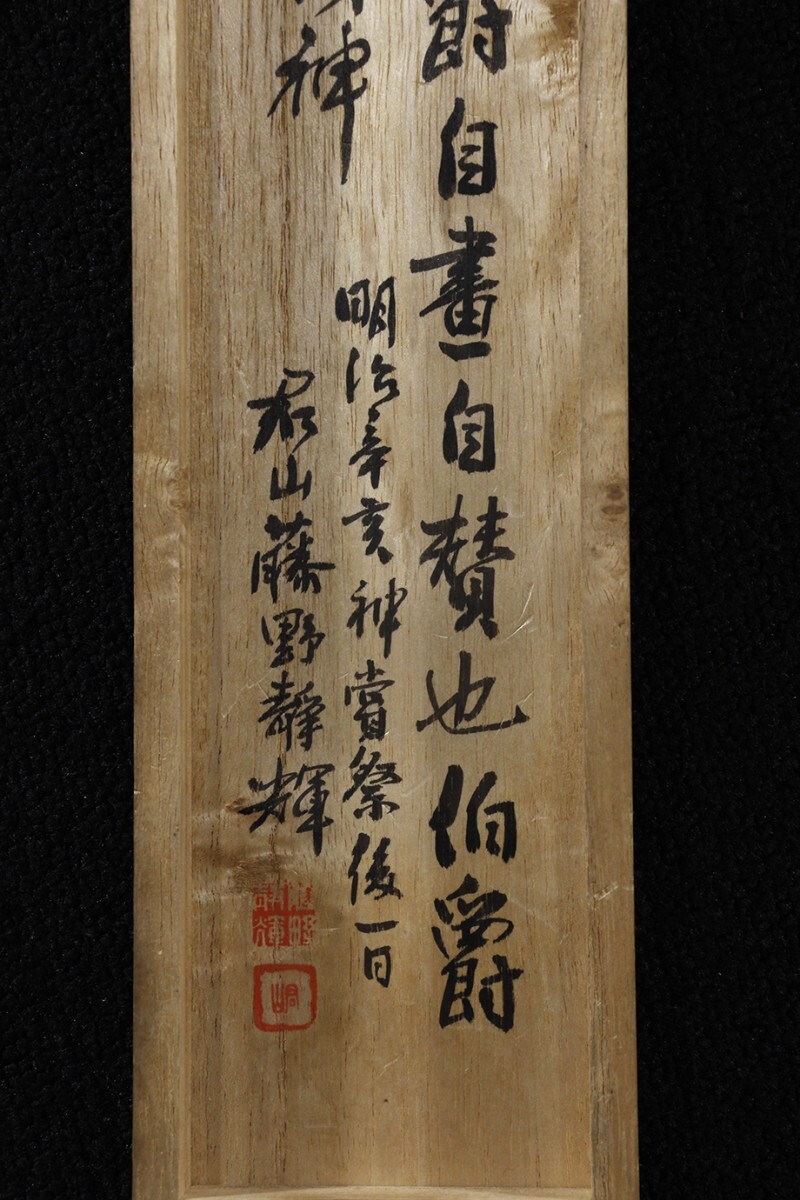 爵自畫自賛也伯爵
神
明治辛亥神嘗祭後一日
君山藤野靜輝